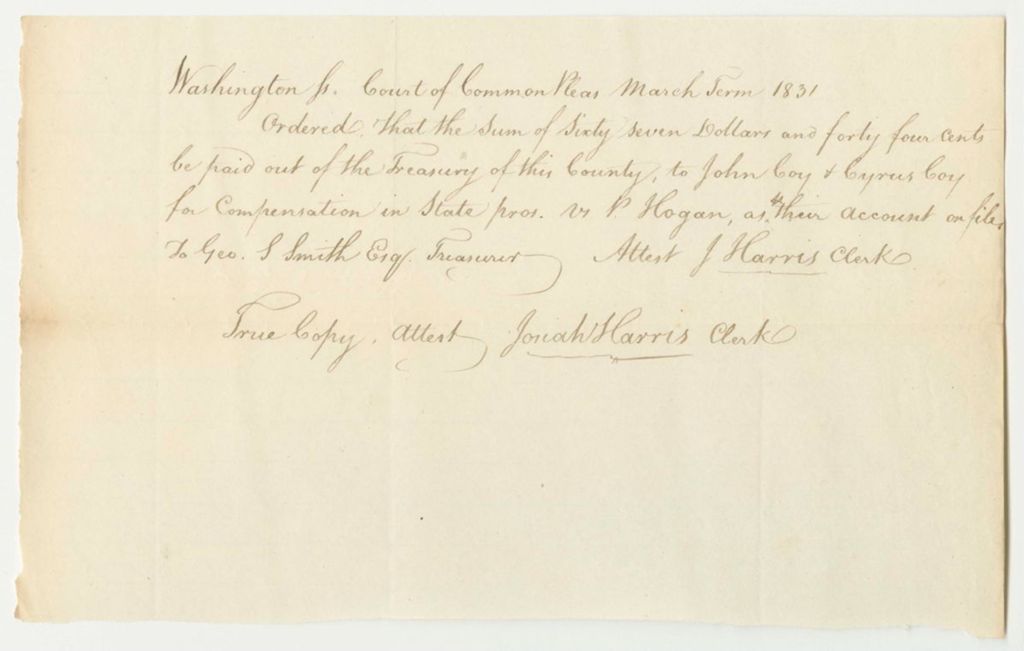 Washington ss. Court of Common Pleas March Term 1831
Ordered, that the Sum of Sixty seven Dollars and forty four cents
be paid out of the Treasury of this County, to John Coy & Cyrus Coy
for Compensation in State pros. vs P. Hogan, as pr their account on file
To Geo. S Smith Esq. Treasurer Attest J Harris Clerk
True Copy, Attest Josiah Harris Clerk